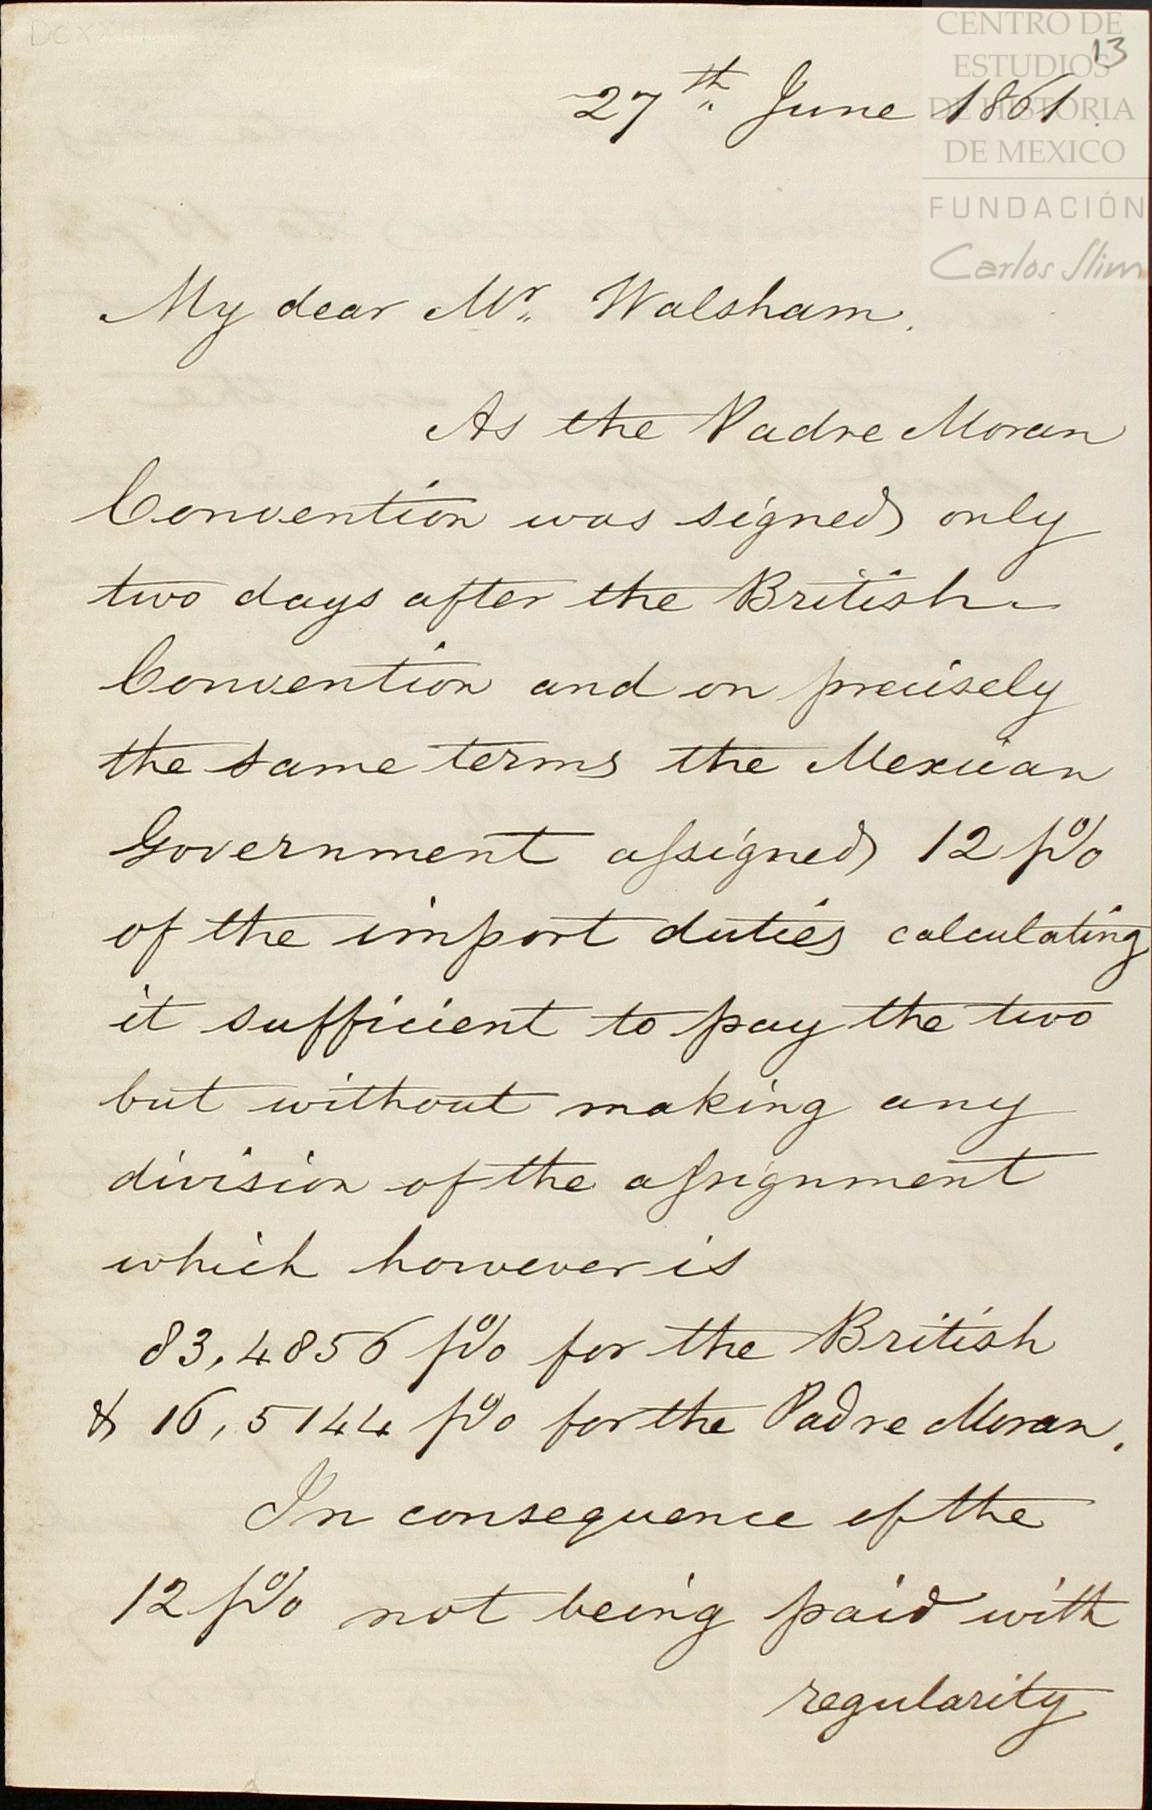 DCXXIII
13
CENTRO DE
ESTUDIOS
DE HISTORIA
DE MEXICO
FUNDACIÓN
Carlos Slim
27th June 1861.
My dear Mr. Walsham.
As the Padre Moran
Convention was signed only
two days after the British
Convention and on precisely
the same terms the Mexican
Government assigned 12 p%
of the import duties calculating
it sufficient to pay the two
but without making any
division of the assignment
which however is
83,4856 p% for the British
& 16,5144 p% for the Padre Moran.
In consequence of the
12 p% not being paid with
regularity